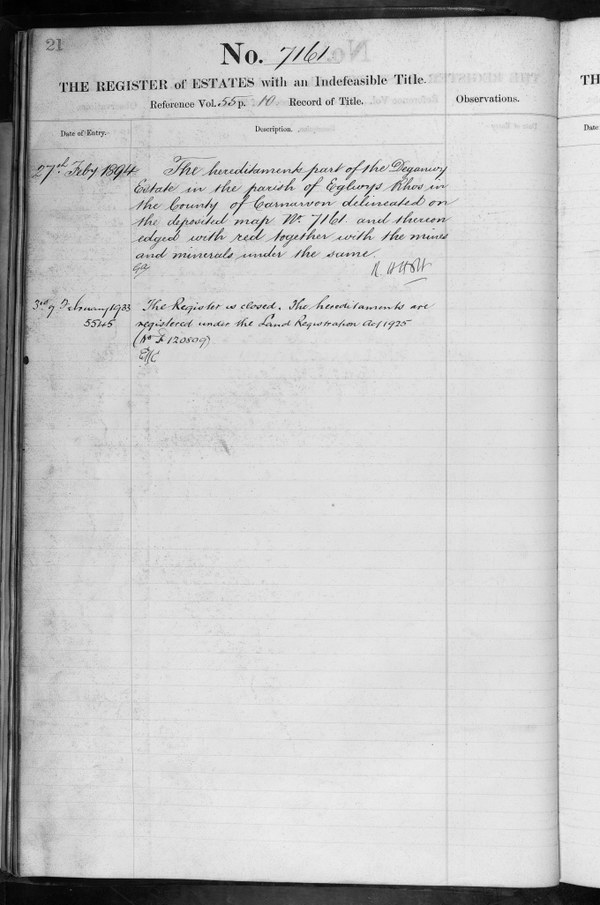 21
No. 7161
THE REGISTER of ESTATES with an Indefeasible Title.
Reference Vol. 55 p. 10 Record of Title.
Observations.
Date of Entry.
Description.
27th Feby 1894
The hereditaments part of the Deganwy
Estate in the parish of Eglwys Rhos in
the County of Carnarvon delineated on
the deposited map No. 7161 and thereon
edged with red together with the mines
and minerals under the same.
3rd of February 1933
5545
The Register is closed. The hereditaments are
registered under the Land Registration Act 1925
(No F 120809)
TH
Date